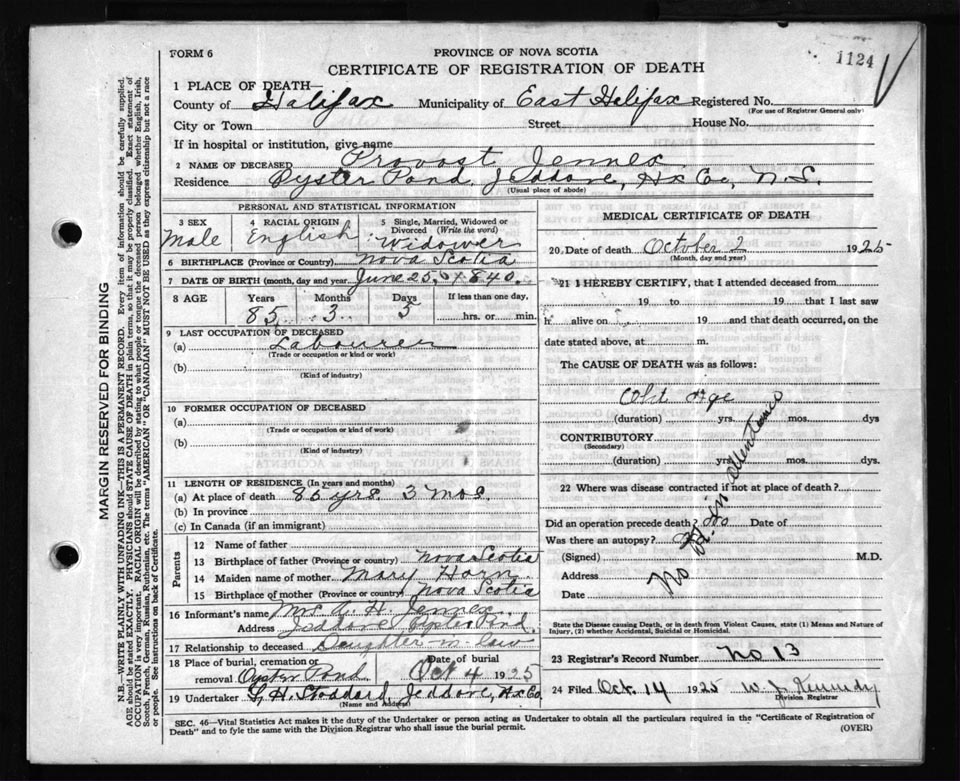 FORM 6
PROVINCE OF NOVA SCOTIA
1124
CERTIFICATE OF REGISTRATION OF DEATH
1 PLACE OF DEATH—
County of Halifax Municipality of East Halifax Registered No.
(For use of Registrar General only)
City or Town Street House No.
If in hospital or institution, give name
2 NAME OF DECEASED Provost Jennex
Residence Oyster Pond, Jeddore, Hx Co, N.S.
(Usual place of abode)
PERSONAL AND STATISTICAL INFORMATION
3 SEX Male
4 RACIAL ORIGIN English
5 Single, Married, Widowed or Divorced (Write the word) Widower
6 BIRTHPLACE (Province or Country) Nova Scotia
7 DATE OF BIRTH (month, day and year) June 25, 1840
8 AGE Years Months Days If less than one day,
85 3 5 hrs. or min.
9 LAST OCCUPATION OF DECEASED
(a) Labourer
(Trade or occupation or kind or work)
(b)
(Kind of industry)
10 FORMER OCCUPATION OF DECEASED
(a)
(Trade or occupation or kind of work)
(b)
(Kind of industry)
11 LENGTH OF RESIDENCE (In years and months)
(a) At place of death 85 yrs 3 mos.
(b) In province
(c) In Canada (if an immigrant)
Parents
12 Name of father
13 Birthplace of father (Province or country) Nova Scotia
14 Maiden name of mother Mary
15 Birthplace of mother (Province or country) Nova Scotia
16 Informant's name Mrs H. Jennex
Address Jeddore Oyster Pond
17 Relationship to deceased Daughter-in-law
18 Place of burial, cremation or removal Oyster Pond Date of burial Oct 4 1925
19 Undertaker H. Stoddard, Jeddore, Hx Co
(Name and Address)
MEDICAL CERTIFICATE OF DEATH
20. Date of death October 2 1925
(Month, day and year)
21 I HEREBY CERTIFY, that I attended deceased from
19 to 19 that I last saw
h alive on 19 and that death occurred, on the
date stated above, at m.
The CAUSE OF DEATH was as follows:
Old Age
(duration) yrs. mos. dys
CONTRIBUTORY
(Secondary)
(duration) yrs. mos. dys.
22 Where was disease contracted if not at place of death?
Did an operation precede death? No Date of
Was there an autopsy?
(Signed) M.D.
Address
Date
No Dr. in attendance
State the Disease causing Death, or in death from Violent Causes, state (1) Means and Nature of
Injury, (2) whether Accidental, Suicidal or Homicidal.
23 Registrar's Record Number No 13
24 Filed Oct. 14 1925 W. J. Kennedy
Division Registrar
SEC. 46—Vital Statistics Act makes it the duty of the Undertaker or person acting as Undertaker to obtain all the particulars required in the "Certificate of Registration of
Death" and to fyle the same with the Division Registrar who shall issue the burial permit.
(OVER)
MARGIN RESERVED FOR BINDING
N.B.—WRITE PLAINLY WITH UNFADING INK—THIS IS A PERMANENT RECORD. Every item of information should be carefully supplied.
AGE should be stated EXACTLY. PHYSICIANS should STATE CAUSE OF DEATH in plain terms, so that it may be properly classified. Exact statement of
OCCUPATION is very important. RACIAL ORIGIN will be described by stating to what people or tongue the deceased person belonged whether English, Irish,
Scotch, French, German, Russian, Ruthenian, etc. The terms "AMERICAN" OR "CANADIAN" MUST NOT BE USED as they express citizenship but not a race
or people. See instructions on back of Certificate.